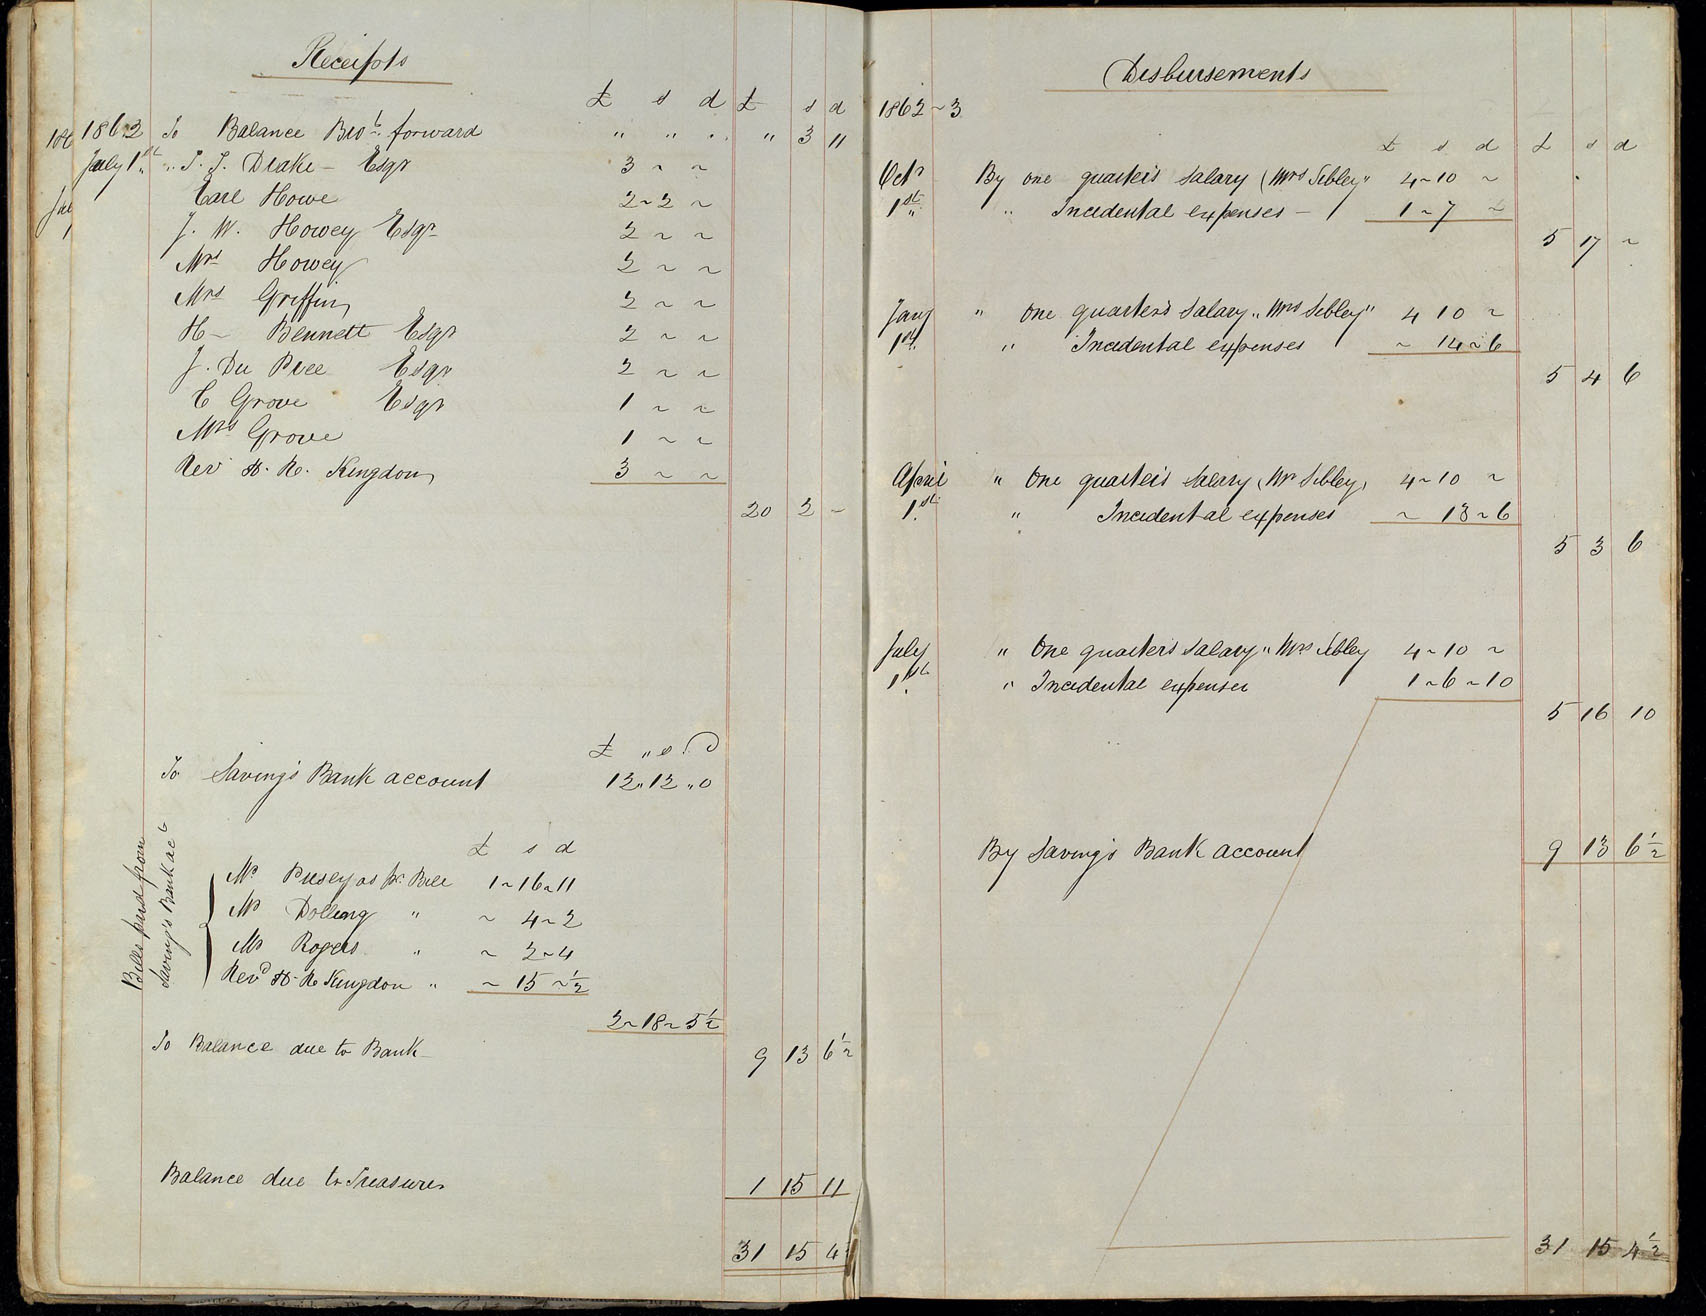 Receipts
£ s d £ s d
1862 To Balance Bro.t forward " " " " 3 11
July 1st " T. T. Drake - Esqr 3 ~ ~
Earl Howe 2~2 ~
J. W. Howey Esqr 2 ~ ~
Mrs Howey 2 ~ ~
Mrs Griffin 2 ~ ~
H- Bennett Esqr 2 ~ ~
J. Du Pree Esqr 2 ~ ~
C Grove Esqr 1 ~ ~
Mrs Grove 1 ~ ~
Revd H. R. Kingdon 3 ~ ~
20 2 ~
£ " s. d
To Saving's Bank account 12"12"0
Bills paid from
Saving's Bank act
£ s d
Mr Pusey as pr Bill 1~16~11
Mr Dolling " ~ 4~2
Mr Rogers " ~ 2~4
Revd H R Kingdon " ~ 15 ~½
2~18~5½
To Balance due to Bank 9 13 6½
Balance due to Treasurer 1 15 11
31 15 4½
Disbursements
1862~3
£ s d £ s d
Octr By one quarter's salary (Mrs Sibley" 4~10 ~
1st " " Incidental expenses - 1~7 ~
5 17 ~
Jany " One quarter's salary "Mrs Sibley" 4 10 ~
1st " Incidental expenses ~ 14~6
5 4 6
April " One quarter's salary (Mrs Sibley) 4~10 ~
1st " Incidental expenses ~ 13~6
5 3 6
July " One quarter's salary "Mrs Sibley 4~10 ~
1st " Incidental expenses 1~6~10
5 16 10
By Saving's Bank account 9 13 6½
31 15 4½